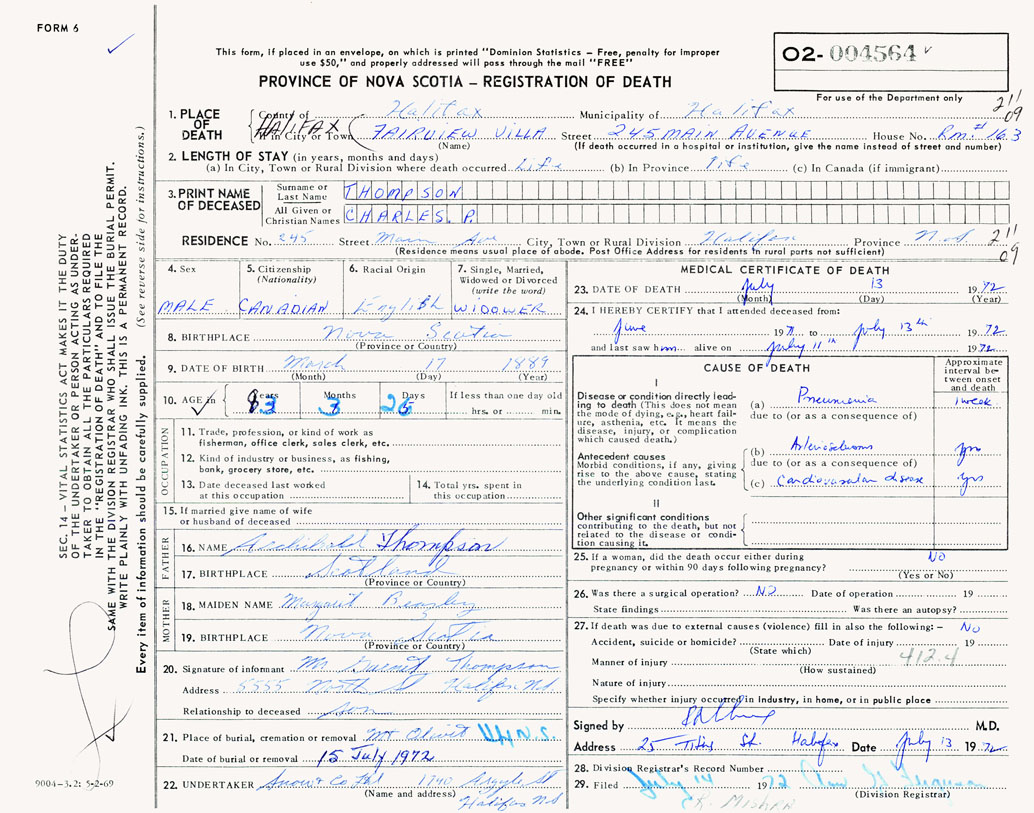 FORM 6
This form, if placed in an envelope, on which is printed "Dominion Statistics – Free, penalty for improper
use $50," and properly addressed will pass through the mail "FREE"
PROVINCE OF NOVA SCOTIA – REGISTRATION OF DEATH
O2-004564
For use of the Department only
211
09
1. PLACE OF DEATH
County of Halifax Municipality of Halifax
HALIFAX City or Town FAIRVIEW VILLA Street 245 MAIN AVENUE House No. Rm.# 163
(Name) (If death occurred in a hospital or institution, give the name instead of street and number)
2. LENGTH OF STAY (in years, months and days)
(a) In City, Town or Rural Division where death occurred Life (b) In Province life (c) In Canada (if immigrant)
3. PRINT NAME OF DECEASED
Surname or Last Name THOMPSON
All Given or Christian Names CHARLES. P.
RESIDENCE No. 245 Street Main Ave City, Town or Rural Division Halifax Province N.S.
(Residence means usual place of abode. Post Office Address for residents in rural parts not sufficient)
211
09
4. Sex MALE
5. Citizenship (Nationality) CANADIAN
6. Racial Origin English
7. Single, Married, Widowed or Divorced (write the word) WIDOWER
8. BIRTHPLACE Nova Scotia
(Province or Country)
9. DATE OF BIRTH March 17 1889
(Month) (Day) (Year)
10. AGE in Years 83 Months 3 Days 26 If less than one day old
hrs. or min.
OCCUPATION
11. Trade, profession, or kind of work as
fisherman, office clerk, sales clerk, etc.
12. Kind of industry or business, as fishing,
bank, grocery store, etc.
13. Date deceased last worked
at this occupation
14. Total yrs. spent in
this occupation
15. If married give name of wife
or husband of deceased
FATHER
16. NAME Archibald Thompson
17. BIRTHPLACE Scotland
(Province or Country)
MOTHER
18. MAIDEN NAME Margaret
19. BIRTHPLACE Nova Scotia
(Province or Country)
20. Signature of informant Mr Thompson
Address 5555 North St Halifax N.S.
Relationship to deceased son
21. Place of burial, cremation or removal Mt Olivet
Date of burial or removal 15 July 1972
22. UNDERTAKER Snow & Co Ltd 1740 Argyle St
(Name and address) Halifax NS
MEDICAL CERTIFICATE OF DEATH
23. DATE OF DEATH July 13 1972
(Month) (Day) (Year)
24. I HEREBY CERTIFY that I attended deceased from:
June 1971 to July 13th 1972
and last saw him alive on July 11th 1972
CAUSE OF DEATH
Approximate interval between onset and death
I
Disease or condition directly leading to death (This does not mean the mode of dying, e.g., heart failure, asthenia, etc. It means the disease, injury, or complication which caused death.)
(a) Pneumonia 1 week
due to (or as a consequence of)
Antecedent causes
Morbid conditions, if any, giving rise to the above cause, stating the underlying condition last.
(b) Arteriosclerosis yrs
due to (or as a consequence of)
(c) Cardiovascular disease yrs
II
Other significant conditions
contributing to the death, but not related to the disease or condition causing it.
25. If a woman, did the death occur either during
pregnancy or within 90 days following pregnancy? NO
(Yes or No)
26. Was there a surgical operation? NO Date of operation 19
State findings Was there an autopsy?
27. If death was due to external causes (violence) fill in also the following: – NO
Accident, suicide or homicide? Date of injury 19
(State which)
Manner of injury 412.4
(How sustained)
Nature of injury
Specify whether injury occurred in industry, in home, or in public place
Signed by M.D.
Address 25 Titus St. Halifax Date July 13 1972
28. Division Registrar's Record Number
29. Filed July 14 1972
(Division Registrar)
R. MISHRA
SEC. 14 – VITAL STATISTICS ACT MAKES IT THE DUTY
OF THE UNDERTAKER OR PERSON ACTING AS UNDER-
TAKER TO OBTAIN ALL THE PARTICULARS REQUIRED
IN THE "REGISTRATION OF DEATH" AND TO FILE THE
SAME WITH THE DIVISION REGISTRAR WHO SHALL ISSUE THE BURIAL PERMIT.
WRITE PLAINLY WITH UNFADING INK. THIS IS A PERMANENT RECORD.
Every item of information should be carefully supplied. (See reverse side for instructions.)
9004-3.2: 5-2-69